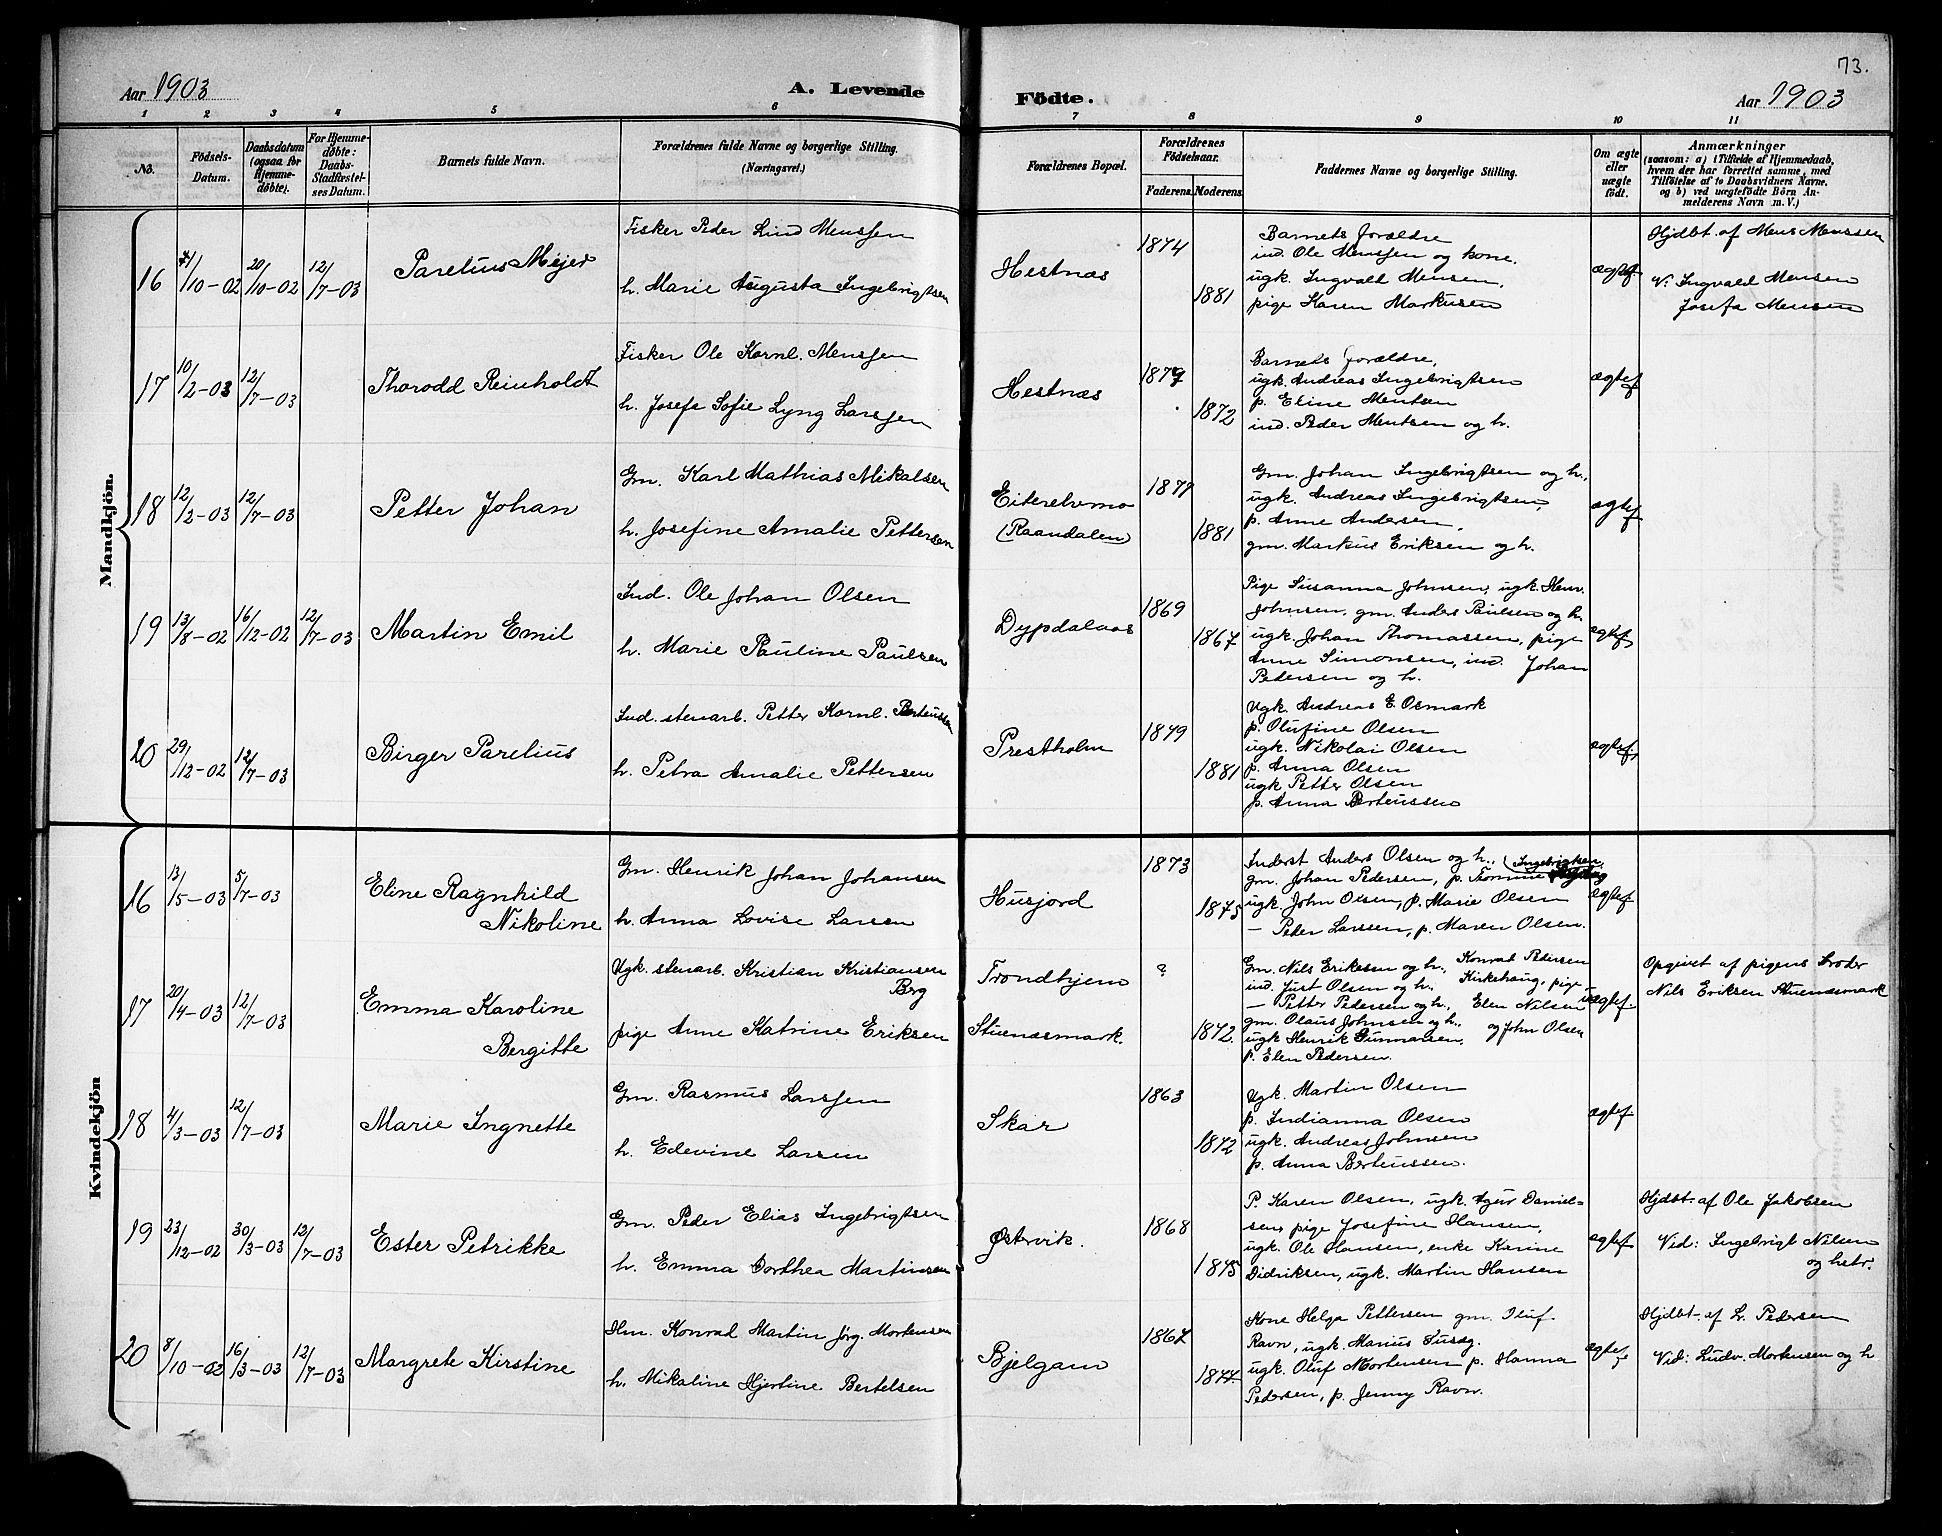 73.
Aar 1903 A. Levende Födte. Aar 1903
1 2 3 4 5 6 7 8 9 10 11
No.
Födsels-Datum.
Daabsdatum (ogsaa for Hjemme-döbte).
For Hjemme-döbte: Daabs-Stadfæstel-ses Datum.
Barnets fulde Navn.
Forældrenes fulde Navne og borgerlige Stilling.
(Næringsvei.)
Forældrenes Bopæl.
Forældrenes Födselsaar.
Faderens. Moderens.
Faddernes Navne og borgerlige Stilling.
Om ægte eller uægte födt.
Anmærkninger
(saasom: a) i Tilfælde af Hjemmedaab,
hvem der har forrettet samme, med
Tilföielse af to Daabsvidners Navne,
og b) ved uægtefödte Börn An-
melderens Navn m. V.)
Mandkjön.
16 /10-02 20/10-02 12/7-03 Parelius Mejer
Fisker Peder Lind Menssen
h. Marie Augusta Ingebrigtsen
Hestnæs
1874
1881
Barnets forældre
ind. Ole Menssen og kone.
ugk. Ingvald Mensen,
pige Karen Markusen
ægtef.
Hjdbt. af Mens Menssen
V: Ingvald Mensen
Josefa Mensen
17 10/2-03 12/7-03 Thorodd Reinholdt
Fisker Ole Kornl. Menssen
h. Josefa Sofie Lyng Larssen
Hestnæs
1879
1872
Barnets forældre,
ugk. Andreas Ingebrigtsen
p. Eline Mentsen
ind. Peder Mentsen og h.
ægtef
18 12/2-03 12/7-03 Petter Johan
Gm. Karl Mathias Mikalsen
h. Josefine Amalie Pettersen
Eiterelvemo
(Raandalen)
1877
1881
Gm. Johan Ingebrigtsen og h.,
ugk. Andreas Ingebrigtsen,
p. Anne Andersen,
gm. Markus Eriksen og h.
ægtef
19 13/8-02 16/12-02 12/7-03 Martin Emil
Ind. Ole Johan Olsen
h. Marie Pauline Paulsen
Dypdalaas
1869
1867
Pige Susanna Johnsen, ugk. Henr.
Johnsen, gm. Anders Paulsen og h.
ugk. Johan Thomassen, pige
Anne Simonsen, ind. Johan
Pedersen og h.
ægtef
20 29/12-02 12/7-03 Birger Parelius
Ind. stenarb. Petter Kornl. Berteussen
h. Petra Amalie Pettersen
Prestholm
1879
1881
Ugk. Andreas E. Osmark
p. Olufine Olsen
ugk. Nikolai Olsen
p. Anna Olsen
ugk Petter Olsen
p. Anna Berteussen
ægtef
Kvindekjön
16 13/5-03 5/7-03 Eline Ragnhild
Nikoline
Gm. Henrik Johan Johansen
h. Anna Lovise Larsen
Husjord
1873
1875
Inderst Anders Olsen og h., Ingebrigtsen,
gm. Johan Pedersen, p. Tomine
ugk. John Olsen, p. Marie Olsen
— Peder Larssen, p. Maren Olsen.
ægtef
17 20/4-03 12/7-03 Emma Karoline
Bergitte
Ugk. stenarb. Kristian Kristiansen
Berg
pige Anne Katrine Eriksen
Trondhjem
Stuenæsmark.
?
1872.
Gm. Nils Eriksen og h., Konrad Pedersen
ind. Just Olsen og h., Kirkehaug, pige
— Petter Pedersen og h., Elen Nilsen
gm. Olaus Johnsen og h., og John Olsen
ugk Henrik Gunnarsen,
p. Elen Pedersen.
uægtef
Opgivet af pigens broder
Nils Eriksen Stuenæsmark
18 4/3-03 12/7-03 Marie Ingnette
Gm. Rasmus Larssen
h. Edevine Larsen
Skar
1863
1872
Ugk. Martin Olsen
p. Indianna Olsen
ugk. Andreas Johnsen
p. Anna Berteussen.
ægtef
19 23/12-02 30/3-03 12/7-03 Ester Petrikke
Gm. Peder Elias Ingebrigtsen
h. Emma Dorthea Martinsen
Østervik.
1868
1875
P. Karen Olsen, ugk. Agur Daniel-
sen, pige Josefine Hansen,
ugk. Ole Hansen, enke Karine
Didriksen, ugk. Martin Hansen
ægtef
Hjdbt. af Ole Jakobsen
Vid: Ingebrigt Nilsen
og hstr.
20 8/10-02 16/3-03 12/7-03 Margrete Kirstine
Hm. Konrad Martin Jörg. Mortensen
h. Mikaline Hjertine Bertelsen
Bjelgam
1867
1877.
Kone Helga Pettersen gm. Oluf
Ravn, ugk. Marius Susæg.
ugk. Oluf Mortensen p. Hanna
Pedersen, p. Jenny Ravn.
ægtef
Hjdbt. af L. Pedersen
Vid: Ludv. Mortensen og h